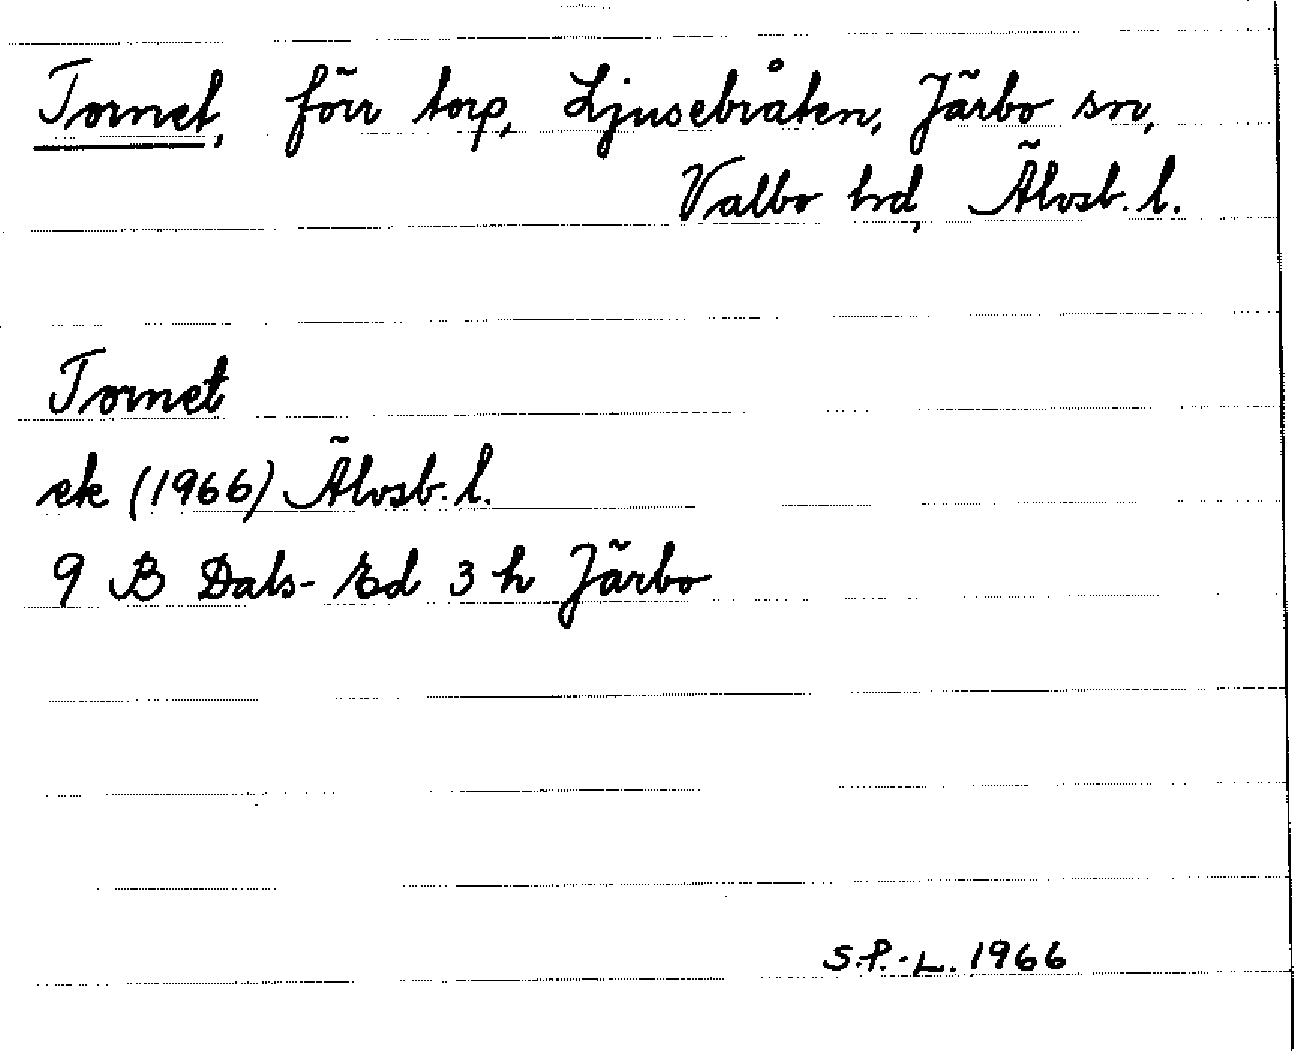 Tornet, förr torp, Ljusebråten, Järbo sn,
Valbo hd, Älvsb. l.
Tornet
ek (1966) Älvsb. l.
9 B Dals-Ed 3 h Järbo
S.P.-L. 1966